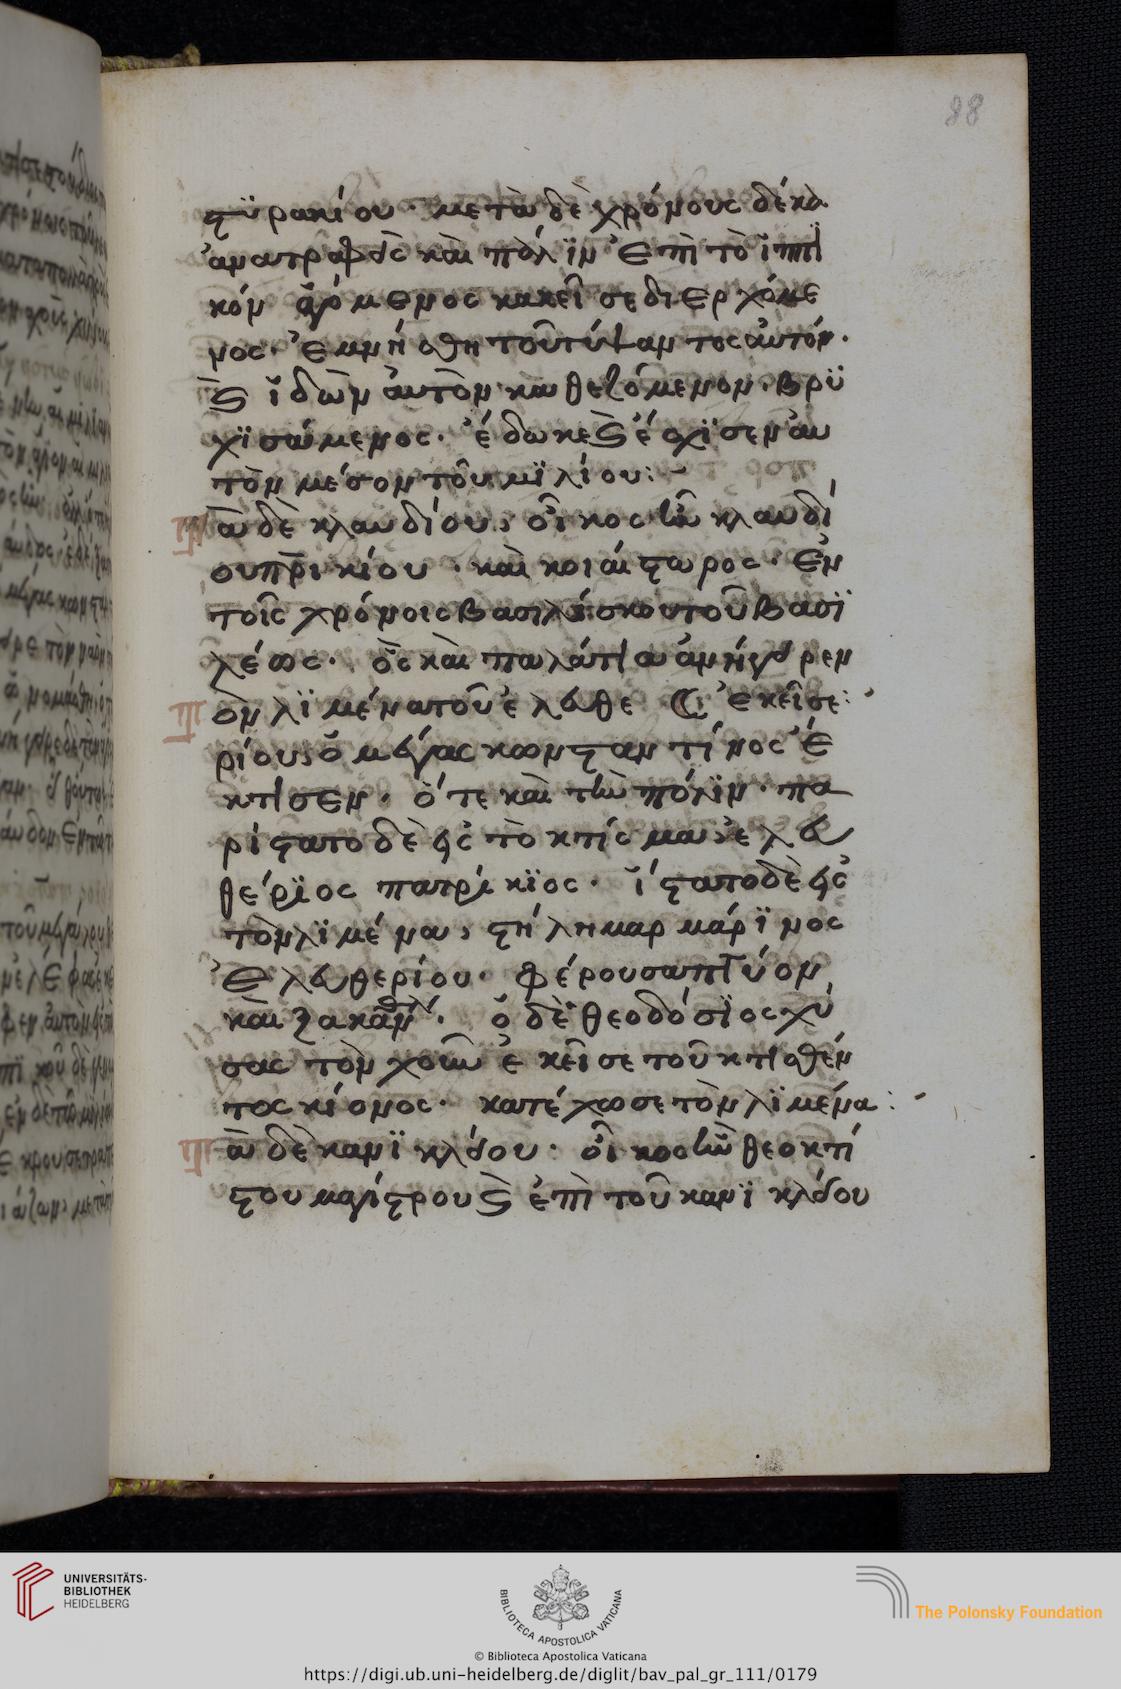 88
στϋρακίου· μετὰ δὲ χρόνους δέκα
ἀνατραφεὶς καὶ πάλϊν ἐπὶ τὸ ἱππι
κὸν ἀγόμενος κακεῖσε διερχόμε
νος· ἐμνήσθη τοῦ τύψαντος αὐτόν·
καὶ ἰδὼν αὐτὸν καθεζόμενον· βρϋ
χϊσάμενος· ἔδωκε καὶ ἔσχϊσεν αὐ
τὸν μέσον τοῦ μϊλίου:
τὰ δὲ κλαυδίου, οἶκος ἦν κλαυδί
ου πρικίου· καὶ κοιαίστωρος· ἐν
τοῖς χρόνοις βασιλίσκου τοῦ βασϊ
λέως· ὃς καὶ παλάτια ἀνήγειρεν
τὸν λϊμένα τοῦ ἐλευθε ἐκεῖσε:
ρίου, ὁ μέγας κωνσταντίνος ἔ
κτισεν· ὅτε καὶ τὴν πόλϊν· πα
ρίστατο δὲ εἰς τὸ κτίσμα, ἐλευ
θέρϊος πατρίκϊος· ἵστατο δὲ εἰς
τὸν λϊμένα, στήλη μαρμάρϊνος
ἐλευθερίου· φέρουσα πτύον
καὶ
ὁ δὲ θεοδόσϊος χύ
σας τὸν χοῦν ἐκεῖσε τοῦ κτισθέν
τος κίονος· κατέχωσε τὸν λϊμένα:
τὰ δὲ κανϊκλείου· οἶκος ἦν θεοκτί
στου μαγίστρου καὶ ἐπὶ τοῦ κανϊκλείου
UNIVERSITÄTS-
BIBLIOTHEK
HEIDELBERG
BIBLIOTECA APOSTOLICA VATICANA
The Polonsky Foundation
© Biblioteca Apostolica Vaticana
https://digi.ub.uni-heidelberg.de/diglit/bav_pal_gr_111/0179